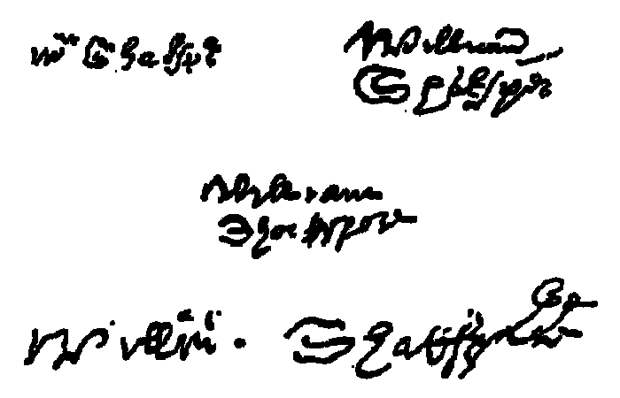 Wm Shakspe
William
Shaksper
William
Shakspere
Willm Shakspere